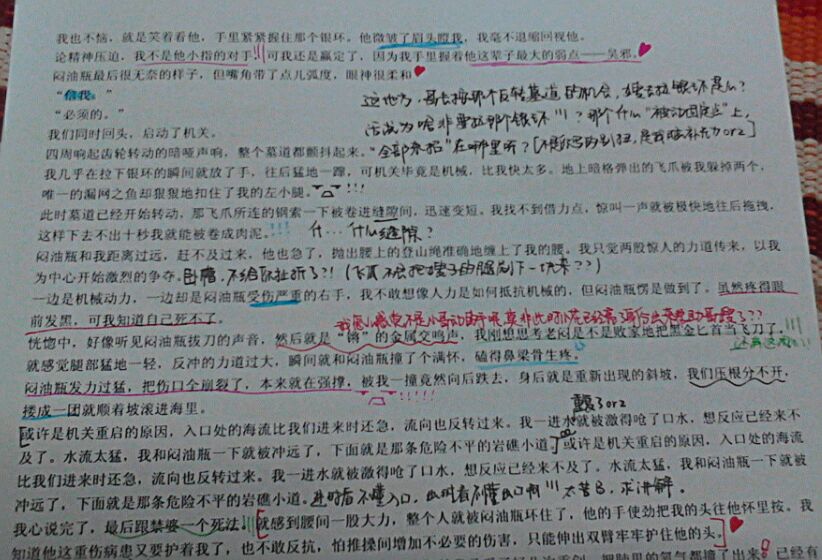 我也不恼，就是笑着看他，手里紧紧握住那个银环。他微皱了眉头瞪我，我毫不退缩回视他。
论精神压迫，我不是他小指的对手!!! 可我还是赢定了，因为我手里握着他这辈子最大的弱点——吴邪。
闷油瓶最后很无奈的样子，但嘴角带了点儿弧度，眼神很柔和
“信我。”
这地方，
反转墓道的机会，
“必须的。”
那个什么“被动固定点”上，
我们同时回头，启动了机关。
“全部来招”在哪里呀？
orz
四周响起齿轮转动的暗哑声响，整个墓道都颤抖起来。
我几乎在拉下银环的瞬间就放了手，往后猛地一蹿，可机关毕竟是机械，比我快太多。地上暗格弹出的飞爪被我躲掉两个，
唯一的漏网之鱼却狠狠地扣住了我的左小腿。
此时墓道已经开始转动，那飞爪所连的钢索一下被卷进缝隙间，迅速变短。我找不到借力点，惊叫一声就被极快地往后拖拽，
这样下去不出十秒我就能被卷成肉泥。!!! 什…什么缝隙？
闷油瓶和我距离过远，赶不及过来，他也急了，抛出腰上的登山绳准确地缠上了我的腰，我只觉两股惊人的力道传来，以我
为中心开始激烈的争夺。卧槽，不给你扯折了?!
一边是机械动力，一边却是闷油瓶受伤严重的右手，我不敢想像人力是如何抵抗机械的，但闷油瓶愣是做到了。虽然疼得眼
前发黑，可我知道自己死不了。
恍惚中，好像听见闷油瓶拔刀的声音，然后就是“锵”的金属交鸣声，我刚想思考老闷是不是败家地把黑金匕首当飞刀了。!!!
就感觉腿部猛地一轻，反冲的力道过大，瞬间就和闷油瓶撞了个满怀，磕得鼻梁骨生疼。
闷油瓶发力过猛，把伤口全崩裂了，本来就在强撑，被我一撞竟然向后跌去，身后就是重新出现的斜坡，我们压根分不开，
搂成一团就顺着坡滚进海里。
重复了orz
或许是机关重启的原因，入口处的海流比我们进来时还急，流向也反转过来。我一进水就被激得呛了口水，想反应已经来不
及了。水流太猛，我和闷油瓶一下就被冲远了，下面就是那条危险不平的岩礁小道。或许是机关重启的原因，入口处的海流
比我们进来时还急，流向也反转过来。我一进水就被激得呛了口水，想反应已经来不及了。水流太猛，我和闷油瓶一下就被
冲远了，下面就是那条危险不平的岩礁小道。进时看不懂入口，出时看不懂出口啊!!! 太苦B，求详解。
我心说完了，最后跟禁婆一个死法!!! 就感到腰间一股大力，整个人就被闷油瓶环住了，他的手使劲把我的头往他怀里按。我
知道他这重伤病患又要护着我了，也不敢反抗，怕推搡间增加不必要的伤害，只能伸出双臂牢牢护住他的头。